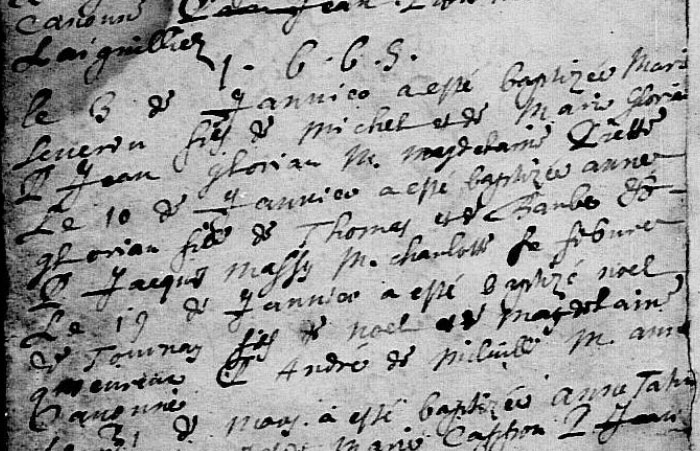 Canonne Jean
Laiguillier
1.6.6.5.
le 3 de Janvier a esté baptizée Marie
fille de Michel et de Marie Glorian
P Jean Glorian M. Magdelaine
Le 10 de Janvier a esté baptizée anne
glorian fille de Thomas et de Barbe
P Jacque Massy M. charlotte le febure
Le 19 de Janvier a esté baptizé noel
de Tournay fils de noel et de Magdelaine
P André de M. anne
Canonne
Le 31 de mars a esté baptizée anne
Marie Cappon P Jean